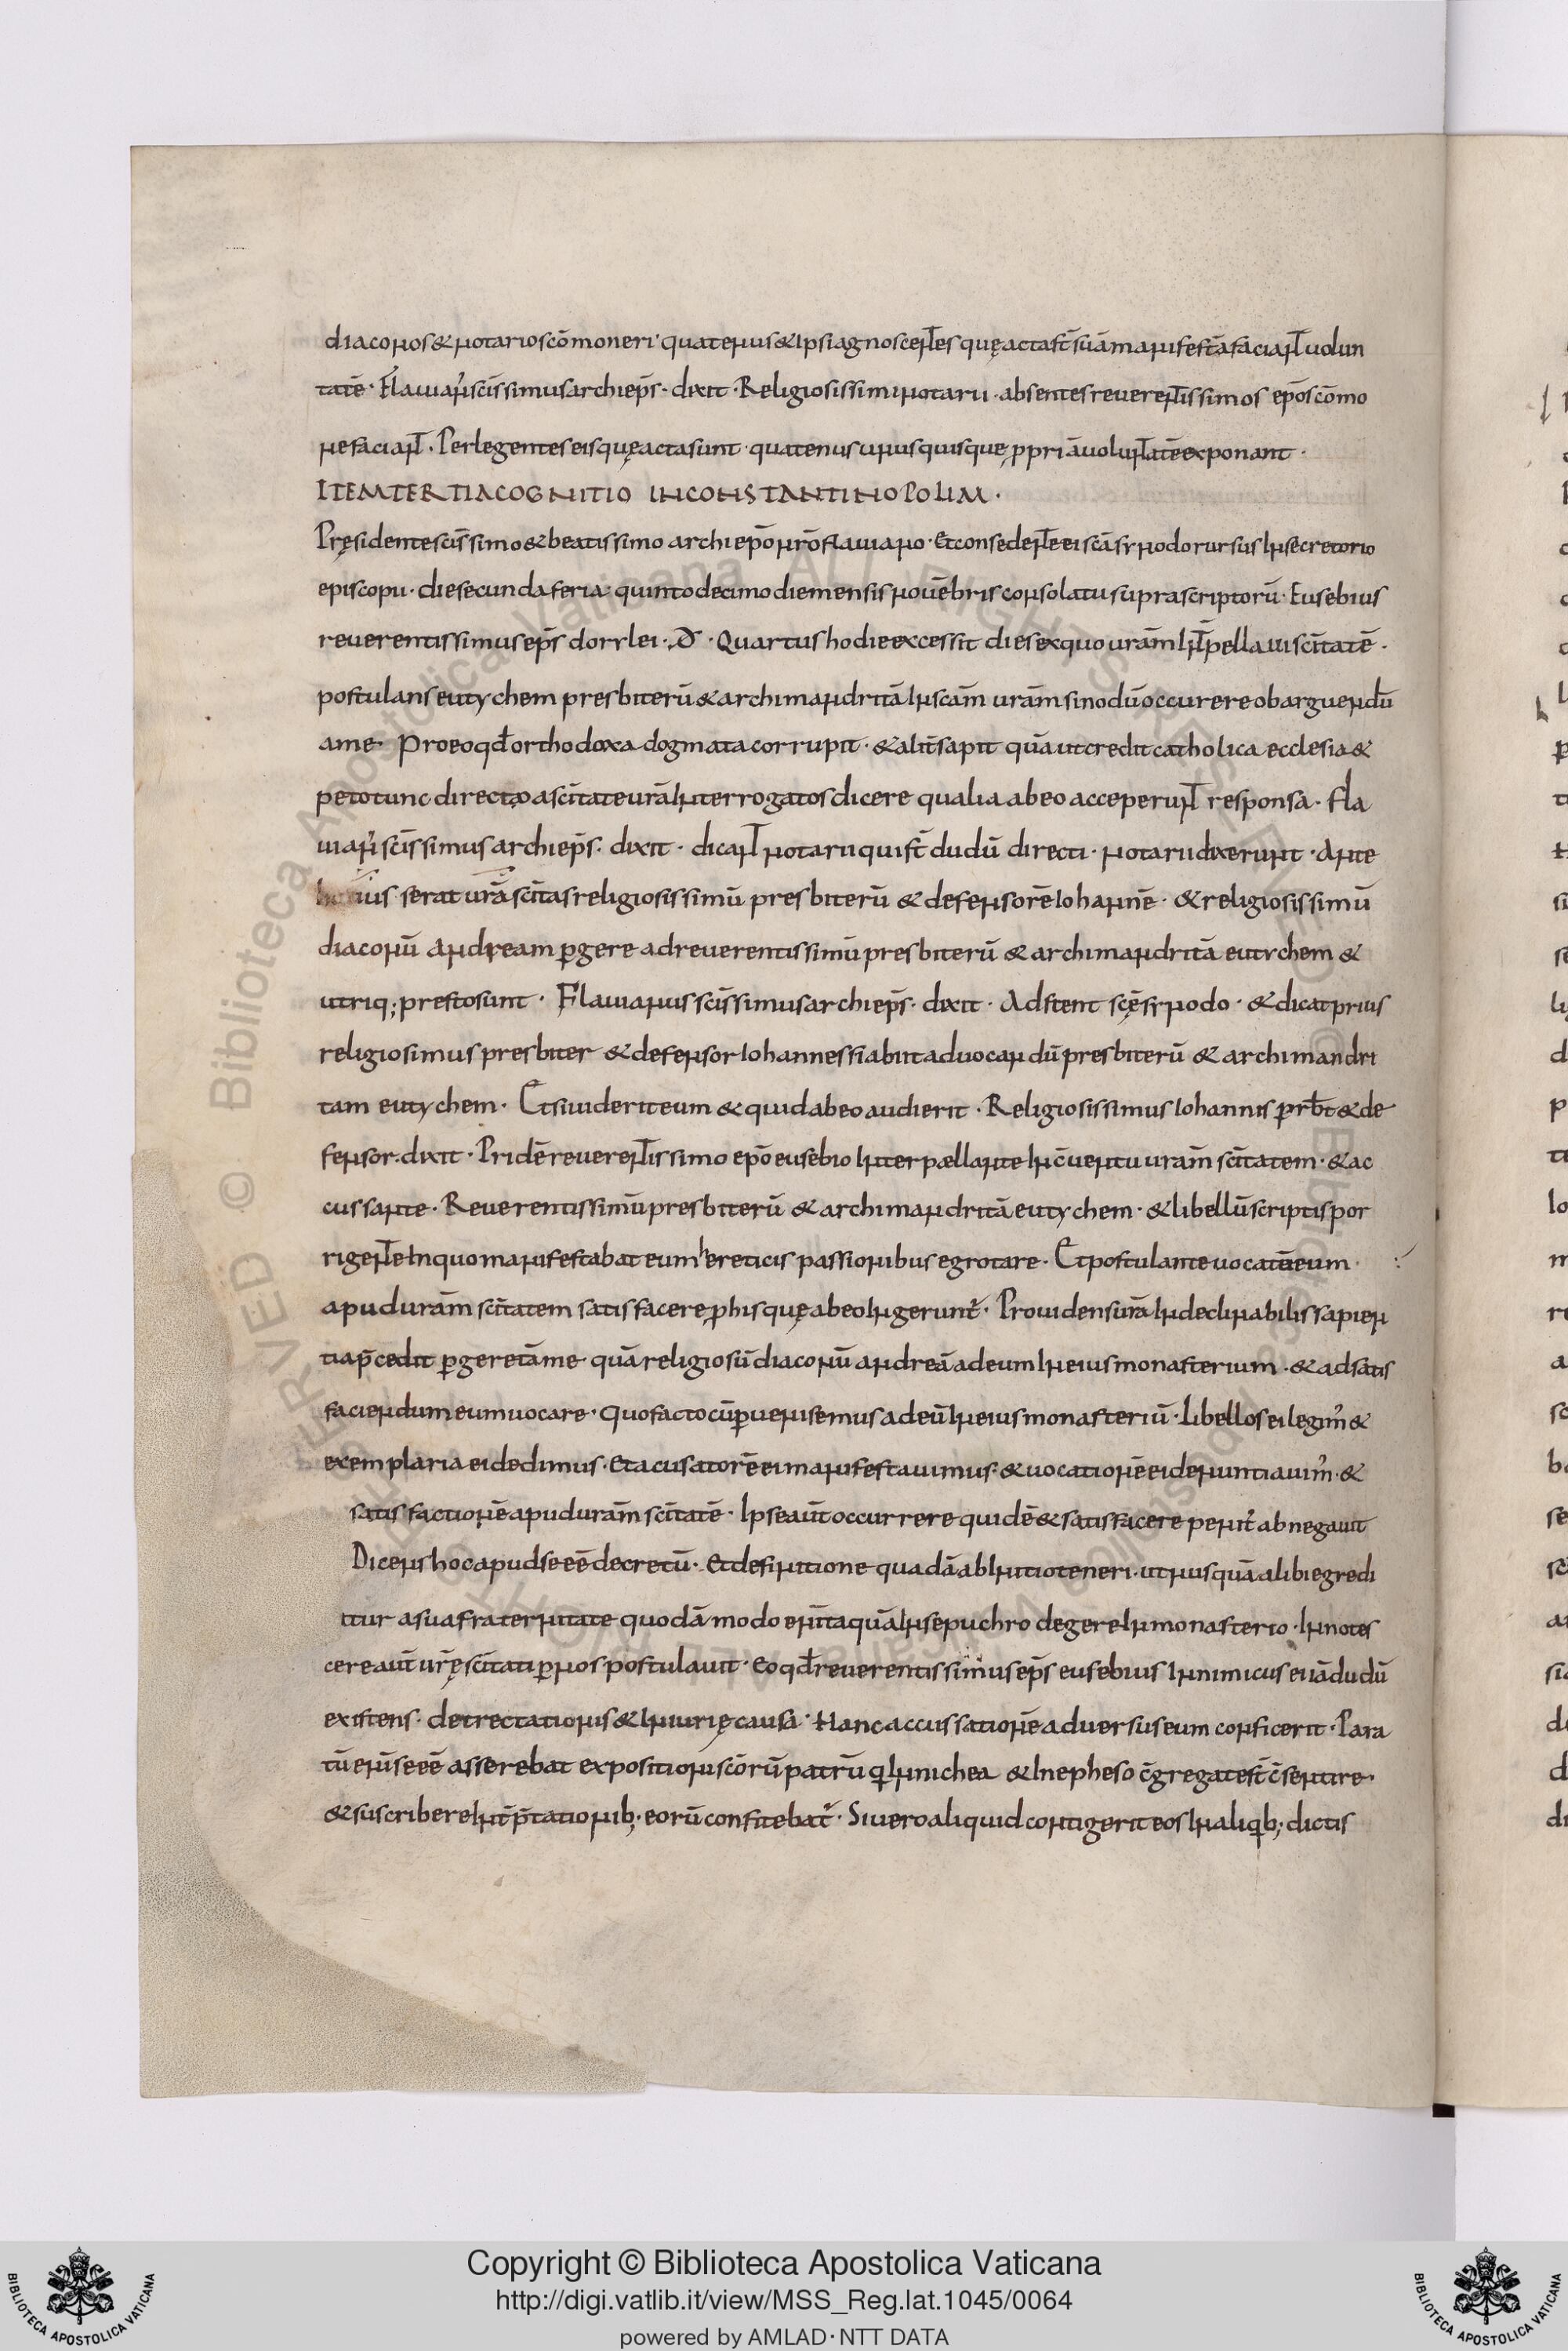 diaconos & notarios cōmoneri· quatenus & ipsi agnoscentes quę acta st̄ suā manifestā faciant uolun
tatē· Flauian᾿ scīssimus archieps̄· dixit· Religiosissimi notarii· absentes reuerentissimos epōs cōmo
ne faciant· Perlegentes eis quę acta sunt· quatenus unusquisque ꝓpriā uoluntatē exponant·
ITEM TERTIA COGNITIO IN CONSTANTINOPOLIM·
Pręsidente scīssimo & beatissimo archiepō nrō flauiano· Et consedente ei scā synodo rursus In secretorio
episcopii· die secunda feria· quinto decimo die mensis nouēbris consolatu suprascriptorū· Eusebius
reuerentissimus eps̄ dorrlei· D̄· Quartus hodie excessit dies ex quo urām Int̄pellaui scītatē·
postulans eutychem presbiterū & archimandritā In scām urām sinodū occurere ob arguendū
a me· Pro eo qd̄ orthodoxa dogmata corrupit· & alit̄ sapit quā ut credit catholica ecclesia &
peto tunc directos a scītate urā Interrogatos dicere qualia ab eo acceperunt responsa· Fla
uian᾿ scīssimus archieps̄· dixit· dicant notarii qui st̄ dudū directi· notarii dixerunt· Ante
serat urā scītas religiosissimū presbiterū & defensorē Iohannē· & religiosissimū
diaconū Andream ꝑgere ad reuerentissimū presbiterū & archimandritā eutychem &
utriq; presto sunt· Flauianus scīssimus archieps̄· dixit· Adstent scę̄ synodo· & dicat prius
religiosimus presbiter & defensor Iohannes si abiit aduocandū presbiterū & archimandri
tam eutychem· Et si uiderit eum & quid ab eo audierit· Religiosissimus Iohannis prb̄t & de
fensor· dixit· Pridē reuerentissimo epō eusebio Interpællante Inc̄uentu urām scītatem· & ac
cussante· Reuerentissimū presbiterū & archimandritā eutychem· & libellū scriptis por
rigente In quo manifestabat eum hereticis passionibus egrotare· Et postulante uocatū eum·
apud urām scītatem satisfacere ꝓ his quę ab eo Ingerunt᾿· Prouidens urā Indeclinabilis sapien
tia p̄cedit ꝑgere tā me quā religiosū diaconū andreā ad eum In eius monasterium· & ad satis
faciendum eum uocare· Quo facto cū ꝑuenisemus ad eū In eius monasteriū· libellos ei legim᾿ &
exemplaria ei dedimus· Et acusatorē ei manifestauimus· & uocationē ei denuntiauim᾿· &
satisfactionē apud urām scītatē· Ipse aut̄ occurrere quidē & satisfacere penit᾿ abnegauit
Dicens hoc apud se eē decretū· Et definitione quadā ab Initio teneri· ut nusquā alibi egredi
itur a sua fraternitate quodā modo enīta quā In sepuchro degere In monasterio· Innotes
cere aut̄ urę̄ scītati ꝑ nos postulauit· Eo qd̄ reuerentissimus eps̄ eusebius Innimicus ei iā dudū
existens· detrectationis & Iniurię causa· Hanc accussationē aduersus eum conficerit· Para
tū enī se eē asserebat expositioni scōrū patrū qī In nichea & In epheso c̄gregate st̄ c̄sentire·
& suscribere Int̄p̄tationib; eorū confitebat᾿· Si uero aliquid contigerit eos In aliqib; dictis